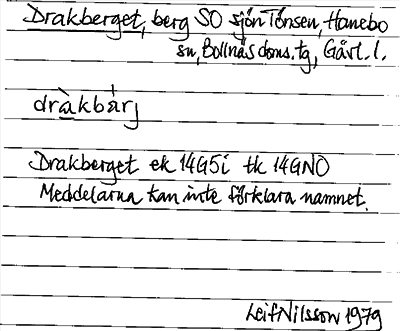 Drakberget, berg SO sjön Tönsen, Hanebo
sn, Bollnäs doms. tg, Gävl. l.
dràkbárj
Drakberget ek 14G5i tk 14GNO
Meddelarna kan inte förklara namnet.
Leif Nilsson 1979